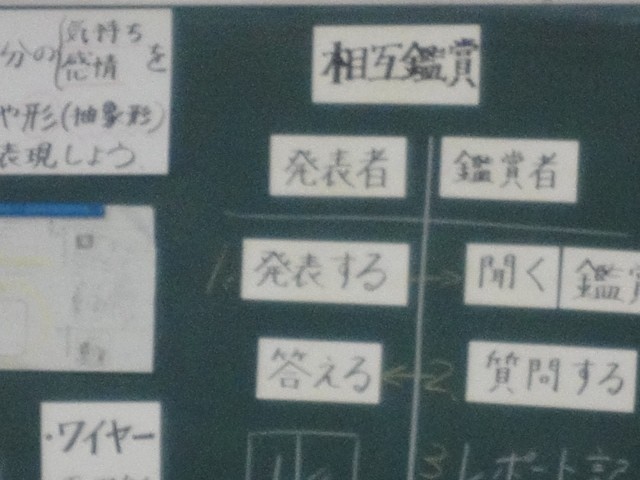 分の{気持ち
感情 を
や形(抽象形)
表現しよう
相互鑑賞
発表者
鑑賞者
1. 発表する → 聞く 鑑賞
答える ← 2. 質問する
・ワイヤー
3 レポート記